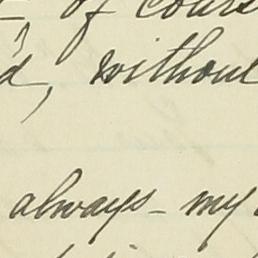 of cours
d, without
always - my